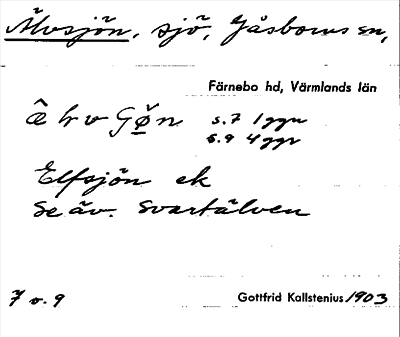 Älvsjön, sjö, Gåsborns sn,
Färnebo hd, Värmlands län
s. 7 1 ggn
s. 9 4 ggr
Elfsjön ek
Se äv. Svartälven
7 o. 9
Gottfrid Kallstenius 1903